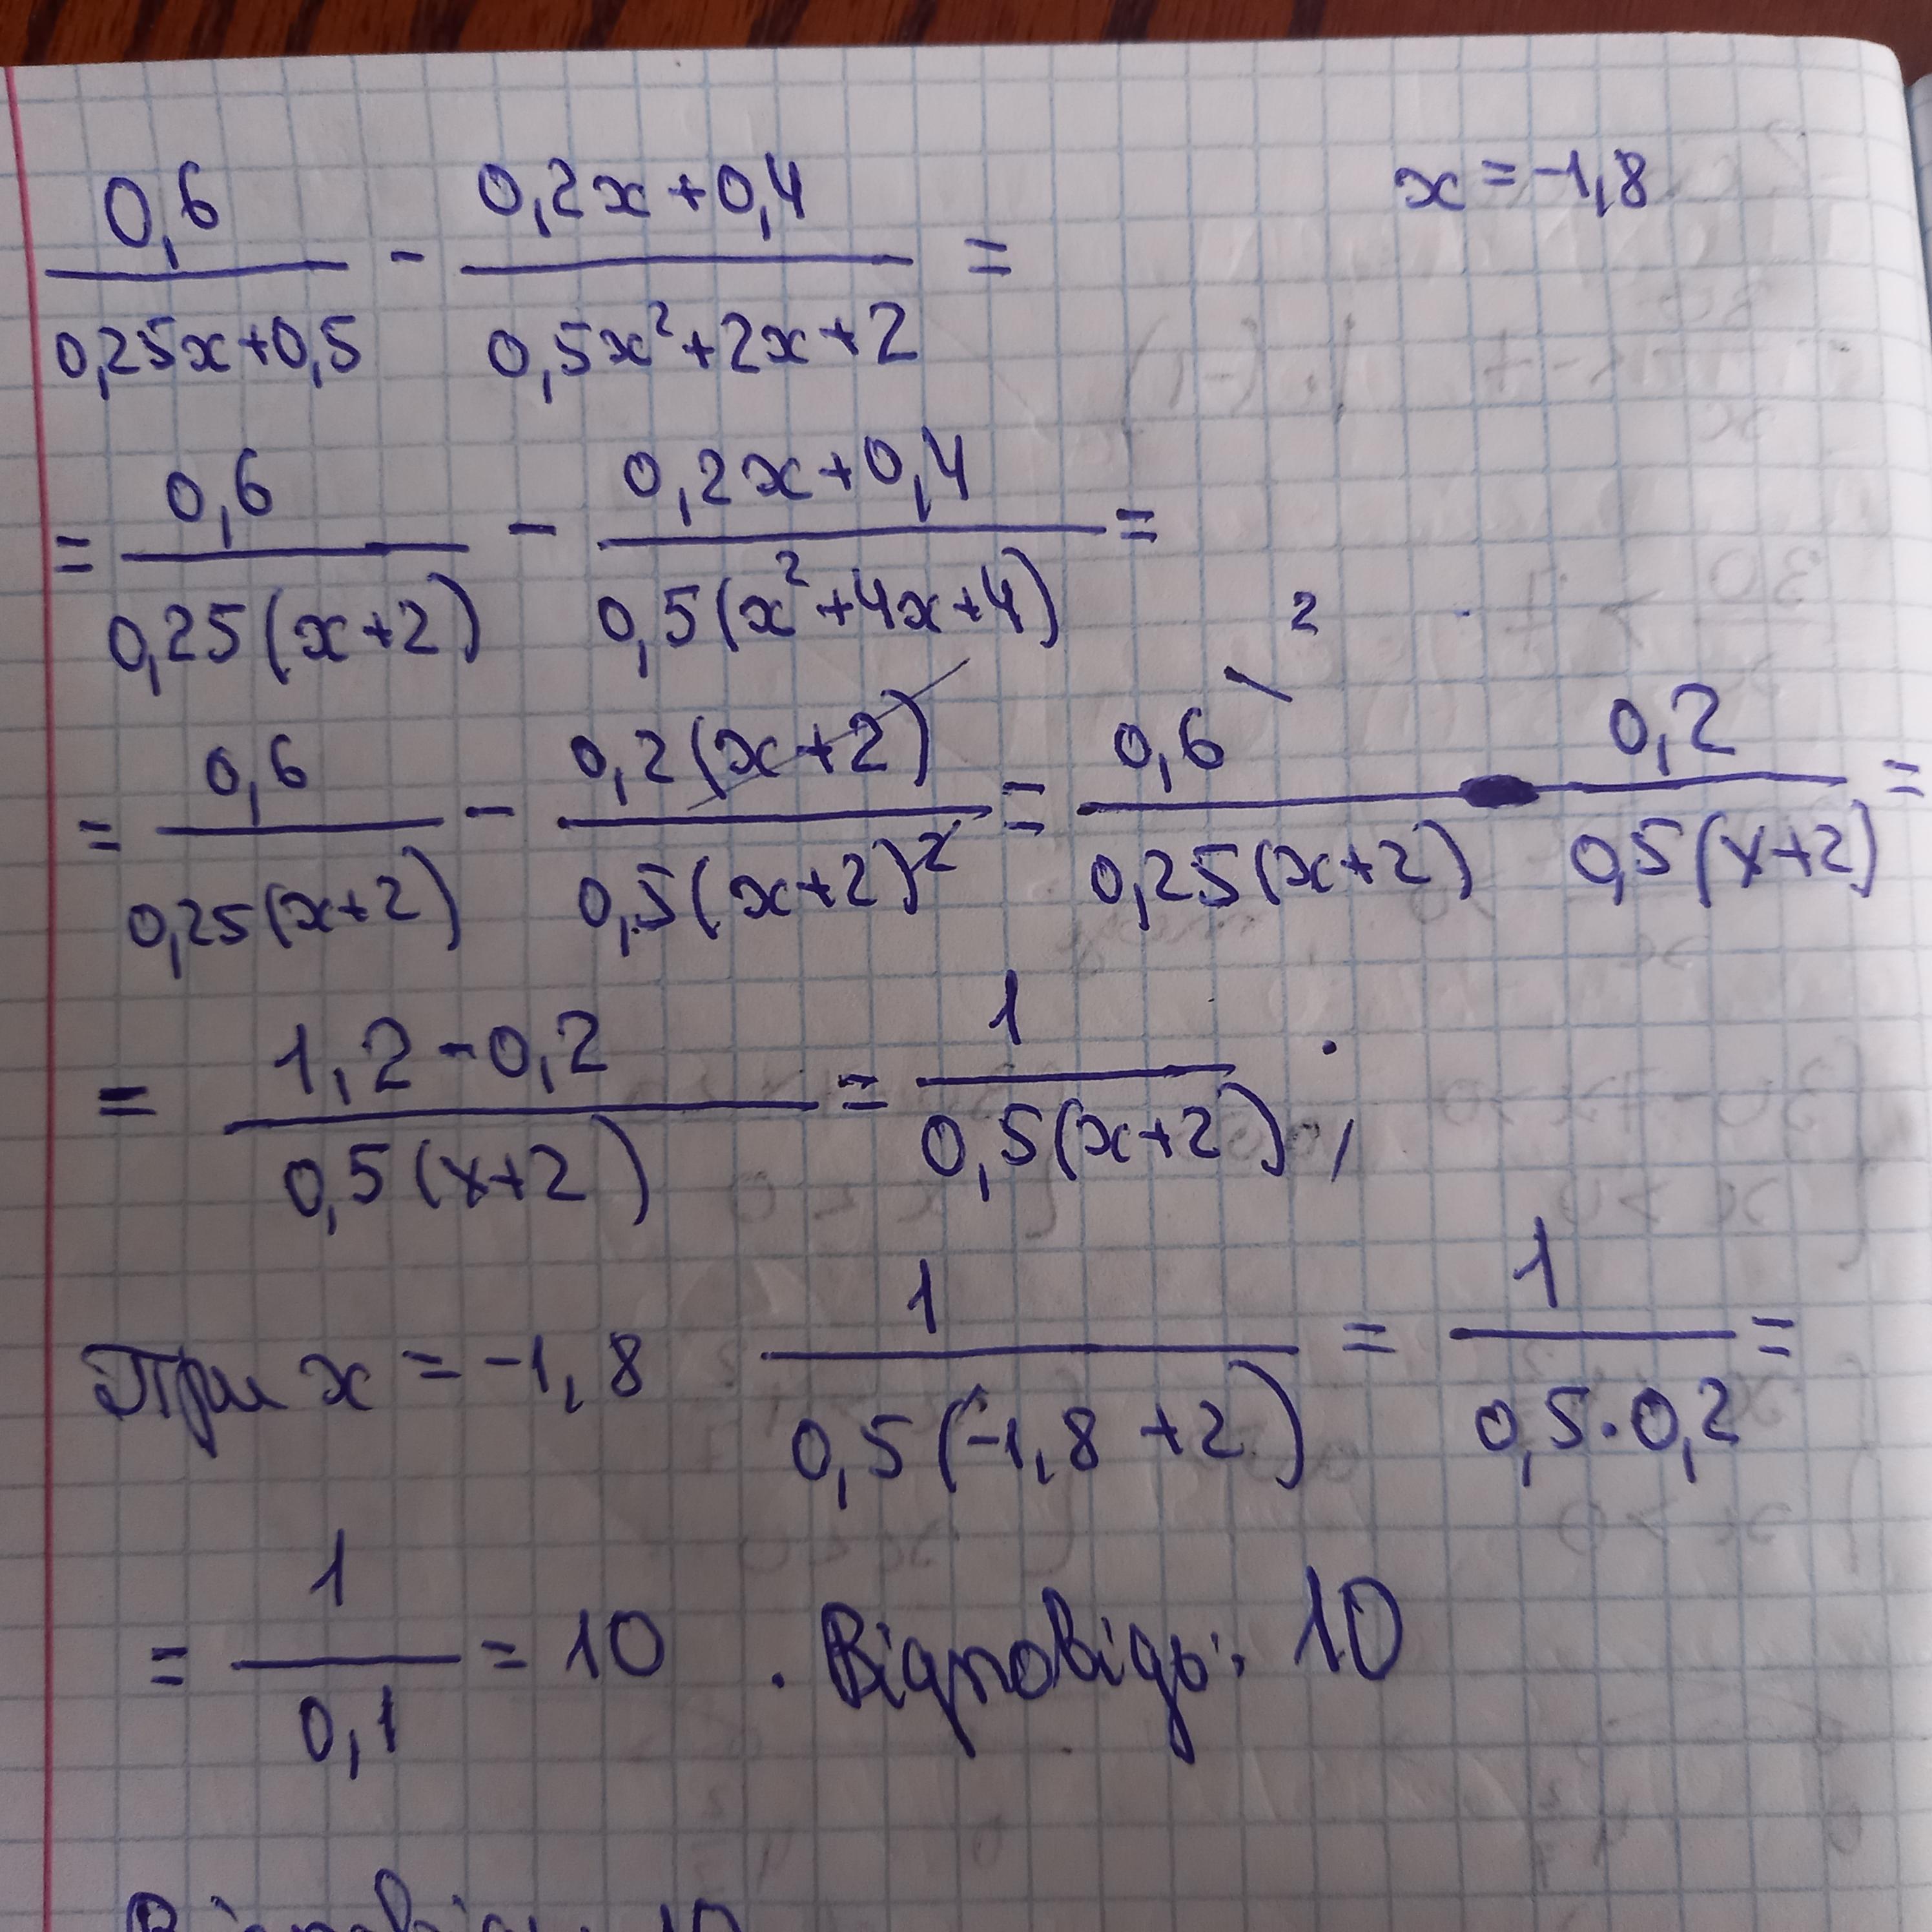 0,6/(0,25x+0,5) - (0,2x+0,4)/(0,5x²+2x+2) = x = -1,8
= 0,6/(0,25(x+2)) - (0,2x+0,4)/(0,5(x²+4x+4)) =
= 0,6/(0,25(x+2)) - 0,2(x+2)/(0,5(x+2)²) = 0,6\2/(0,25(x+2)) - 0,2/(0,5(x+2)) =
= (1,2-0,2)/(0,5(x+2)) = 1/(0,5(x+2));
При x = -1,8 1/(0,5(-1,8+2)) = 1/(0,5·0,2) =
= 1/0,1 = 10. Відповідь: 10